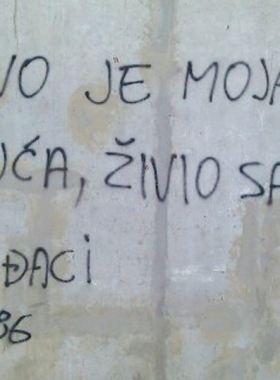 VO JE MOJA
UĆA, ŽIVIO SA
ĐACI
86